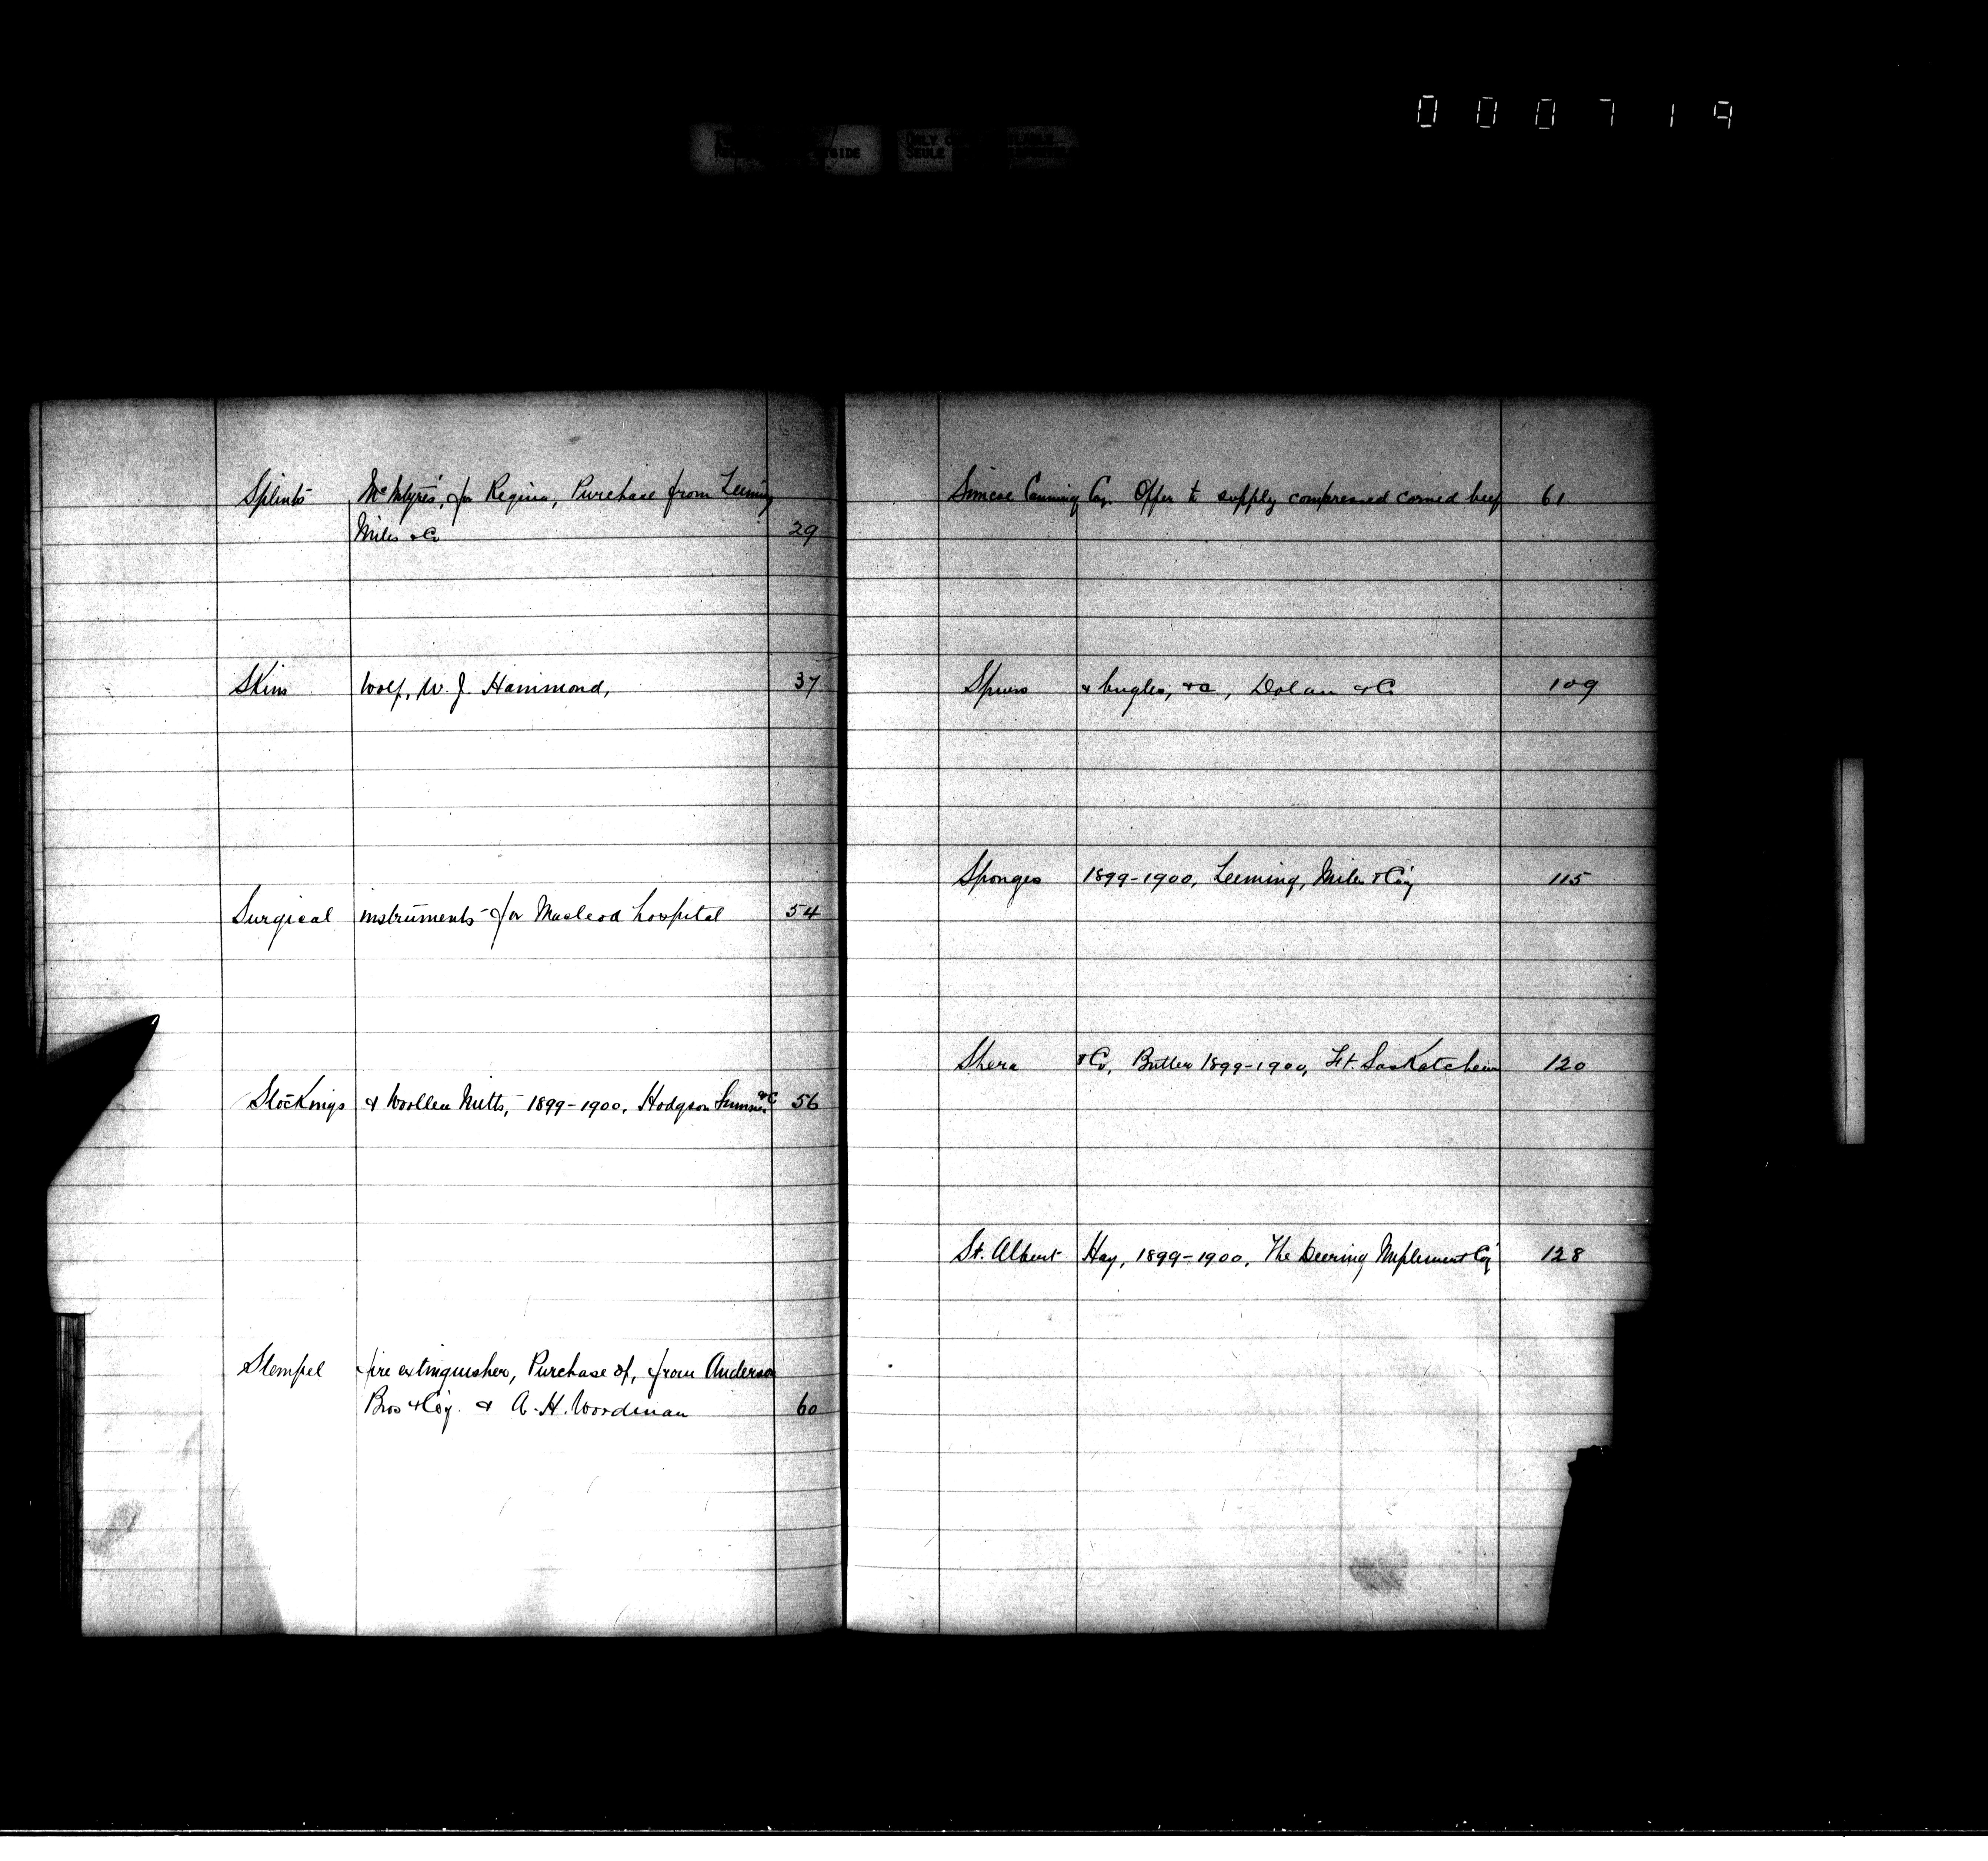 000719
SIDE ONLY
SEULE
Splints McIntyre's, for Regina, Purchase from Leeming
Miles & Co 29
Skins Wolf, W. J. Hammond, 37
Surgical instruments for Macleod hospital 54
Stockings & Woollen Mitts, 1899-1900, Hodgson Sumner &C 56
Stempel fire extinguisher, Purchase of, from Anderson
Bros & Coy. & A. H. Woodman 60
Simcoe Canning Coy. Offer to supply compressed corned beef 61
Spurs & bugles, &c, Dolan & Co 109
Sponges 1899-1900, Leeming, Miles & Coy 115
Shera & Co, Butter 1899-1900, Ft. Saskatchewan 120
St. Albert Hay, 1899-1900, The Deering Implement Coy 128